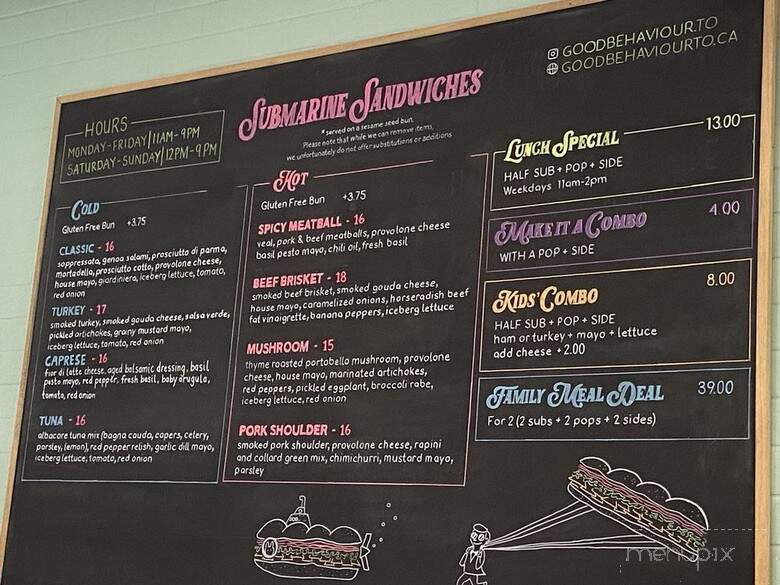 GOODBEHAVIOUR.TO
GOODBEHAVIOURTO.CA
HOURS
MONDAY-FRIDAY|11AM-9PM
SATURDAY-SUNDAY|12PM-9PM
SUBMARINE SANDWICHES
*served on a sesame seed bun.
Please note that while we can remove items,
we unfortunately do not offer substitutions or additions
COLD
Gluten Free Bun +3.75
CLASSIC - 16
soppressata, genoa salami, prosciutto di parma,
mortadella, prosciutto cotto, provolone cheese,
house mayo, giardiniera, iceberg lettuce, tomato,
red onion
TURKEY - 17
smoked turkey, smoked gouda cheese, salsa verde,
pickled artichokes, grainy mustard mayo,
iceberg lettuce, tomato, red onion
CAPRESE - 16
fior di latte cheese, aged balsamic dressing, basil
pesto mayo, red pepper, fresh basil, baby arugula,
tomato, red onion
TUNA - 16
albacore tuna mix (bagna cauda, capers, celery,
parsley, lemon), red pepper relish, garlic dill mayo,
iceberg lettuce, tomato, red onion
HOT
Gluten Free Bun +3.75
SPICY MEATBALL - 16
veal, pork & beef meatballs, provolone cheese
basil pesto mayo, chili oil, fresh basil
BEEF BRISKET - 18
smoked beef brisket, smoked gouda cheese,
house mayo, caramelized onions, horseradish beef
fat vinaigrette, banana peppers, iceberg lettuce
MUSHROOM - 15
thyme roasted portobello mushroom, provolone
cheese, house mayo, marinated artichokes,
red peppers, pickled eggplant, broccoli rabe,
iceberg lettuce, red onion
PORK SHOULDER - 16
smoked pork shoulder, provolone cheese, rapini
and collard green mix, chimichurri, mustard mayo,
parsley
LUNCH SPECIAL 13.00
HALF SUB + POP + SIDE
Weekdays 11am-2pm
MAKE IT A COMBO 4.00
WITH A POP + SIDE
KIDS' COMBO 8.00
HALF SUB + POP + SIDE
ham or turkey + mayo + lettuce
add cheese +2.00
FAMILY MEAL DEAL 39.00
For 2 (2 subs + 2 pops + 2 sides)
menupix